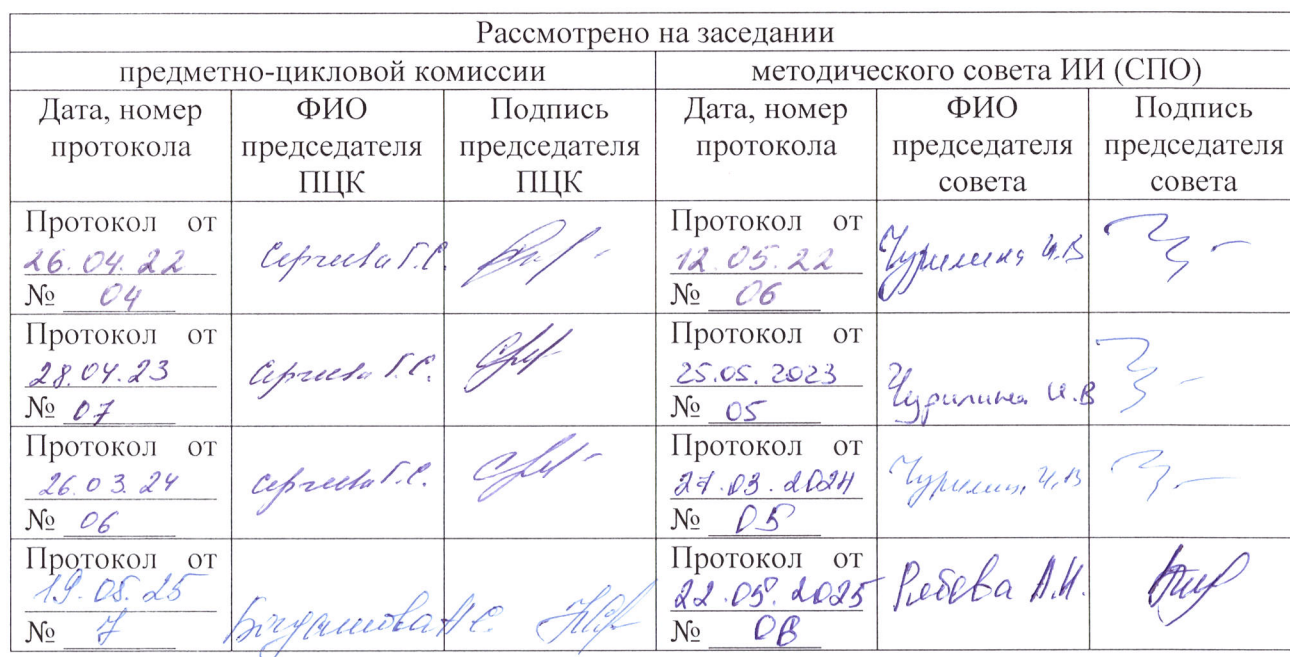 Рассмотрено на заседании
предметно-цикловой комиссии методического совета ИИ (СПО)
Дата, номер протокола ФИО председателя ПЦК Подпись председателя ПЦК Дата, номер протокола ФИО председателя совета Подпись председателя совета
Протокол от
26.04.22
№ 04
Сергеева Г.С.
Протокол от
12.05.22
№ 06
Чурилина И.В
Протокол от
28.04.23
№ 07
Сергеева Г.С.
Протокол от
25.05.2023
№ 05
Чурилина И.В
Протокол от
26.03.24
№ 06
Сергеева Г.С.
Протокол от
27.03.2024
№ 05
Чурилина И.В
Протокол от
19.05.25
№ 7
Протокол от
22.05.2025
№
А.Н.